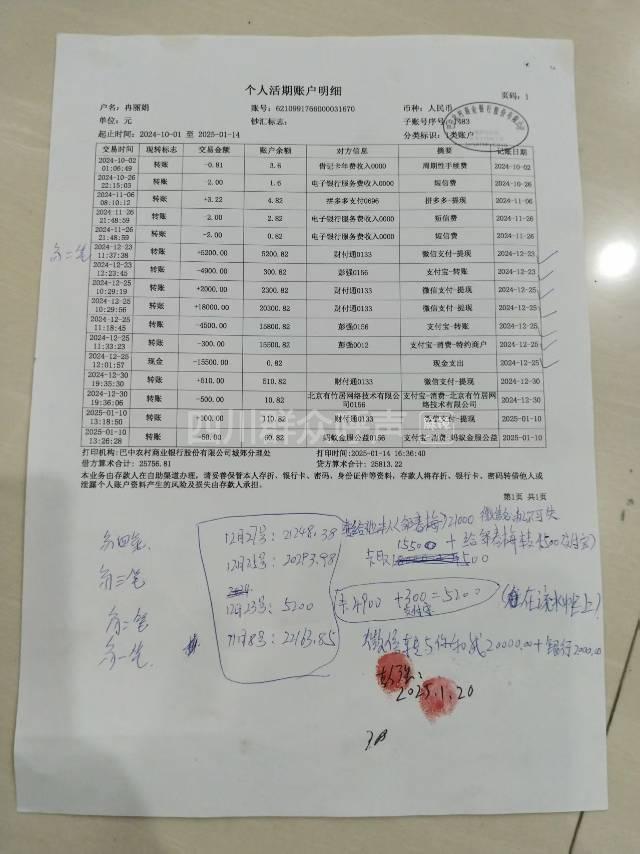 个人活期账户明细
页码：1
户名：冉丽娟 账号：6210991766000031670 币种：人民币
单位：元 钞汇标志： 子账号序号：
起止时间：2024-10-01 至 2025-01-14 分类标识：1类账户
交易时间 现转标志 交易金额 账户余额 对方信息 摘要 记账日期
2024-10-02 01:06:49 转账 -0.81 3.6 借记卡年费收入0000 周期性手续费 2024-10-02
2024-10-26 22:15:03 转账 -2.00 1.6 电子银行服务费收入0000 短信费 2024-10-26
2024-11-06 08:10:12 转账 +3.22 4.82 拼多多支付0696 拼多多-提现 2024-11-06
2024-11-26 21:48:59 转账 -2.00 2.82 电子银行服务费收入0000 短信费 2024-11-26
2024-11-26 21:48:59 转账 -2.00 0.82 电子银行服务费收入0000 短信费 2024-11-26
2024-12-23 11:37:38 转账 +5200.00 5200.82 财付通0133 微信支付-提现 2024-12-23
2024-12-23 12:23:45 转账 -4900.00 300.82 彭强0156 支付宝-转账 2024-12-23
2024-12-25 10:29:19 转账 +2000.00 2300.82 财付通0133 微信支付-提现 2024-12-25
2024-12-25 10:29:56 转账 +18000.00 20300.82 财付通0133 微信支付-提现 2024-12-25
2024-12-25 11:18:45 转账 -4500.00 15800.82 彭强0156 支付宝-转账 2024-12-25
2024-12-25 11:33:23 转账 -300.00 15500.82 彭强0012 支付宝-消费-特约商户 2024-12-25
2024-12-25 12:01:57 现金 -15500.00 0.82 现金支出 2024-12-25
2024-12-30 19:35:30 转账 +510.00 510.82 财付通0133 微信支付-提现 2024-12-30
2024-12-30 19:36:06 转账 -500.00 10.82 北京有竹居网络技术有限公司0156 支付宝-消费-北京有竹居网络技术有限公司 2024-12-30
2025-01-10 13:18:50 转账 +100.00 110.82 财付通0133 微信支付-提现 2025-01-10
2025-01-10 13:26:28 转账 -50.00 60.82 蚂蚁金服公益0156 支付宝-消费-蚂蚁金服公益 2025-01-10
打印机构：巴中农村商业银行股份有限公司城郊分理处 打印时间：2025-01-14 16:36:40
借方算术合计：25756.81 贷方算术合计：25813.22
本业务由存款人在自助渠道办理，请妥善保管本人存折、银行卡、密码、身份证件等资料，存款人将存折、银行卡、密码转借他人或
泄露个人账户资料产生的风险及损失由存款人承担。
第1页 共1页
12月27号：21248.38
12月25号：20293.98
12月23号：5200
卡4900+300=5200
支付宝
11月8号：22163.85
2025.1.20
四川群众呼声网